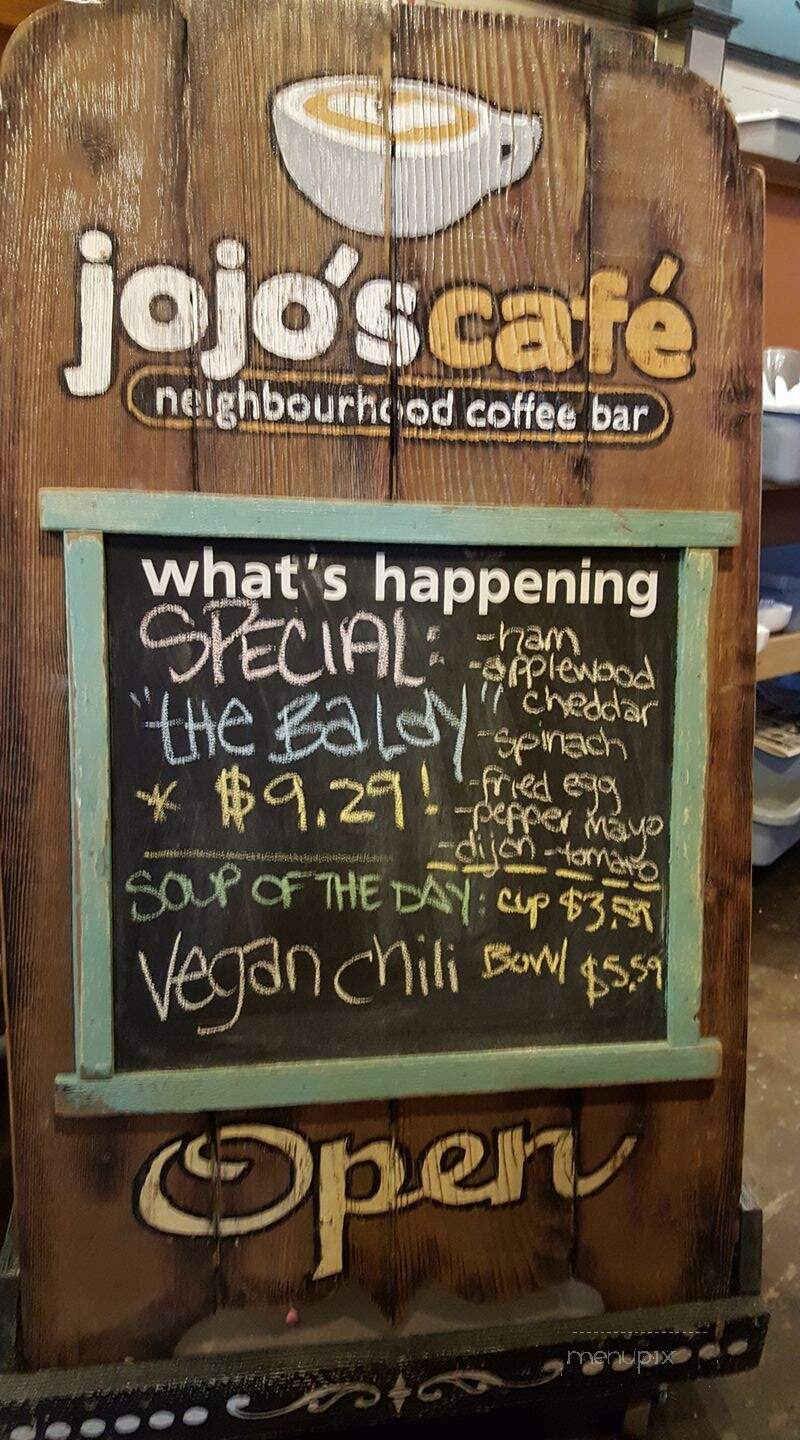 jojo's café
neighbourhood coffee bar
what's happening
SPECIAL:
"the Baldy"
* $9.29!
-ham
-applewood
cheddar
-spinach
-fried egg
-pepper mayo
-dijon -tomato
SOUP OF THE DAY: cup $3.59
Vegan chili Bowl $5.59
Open
menupix